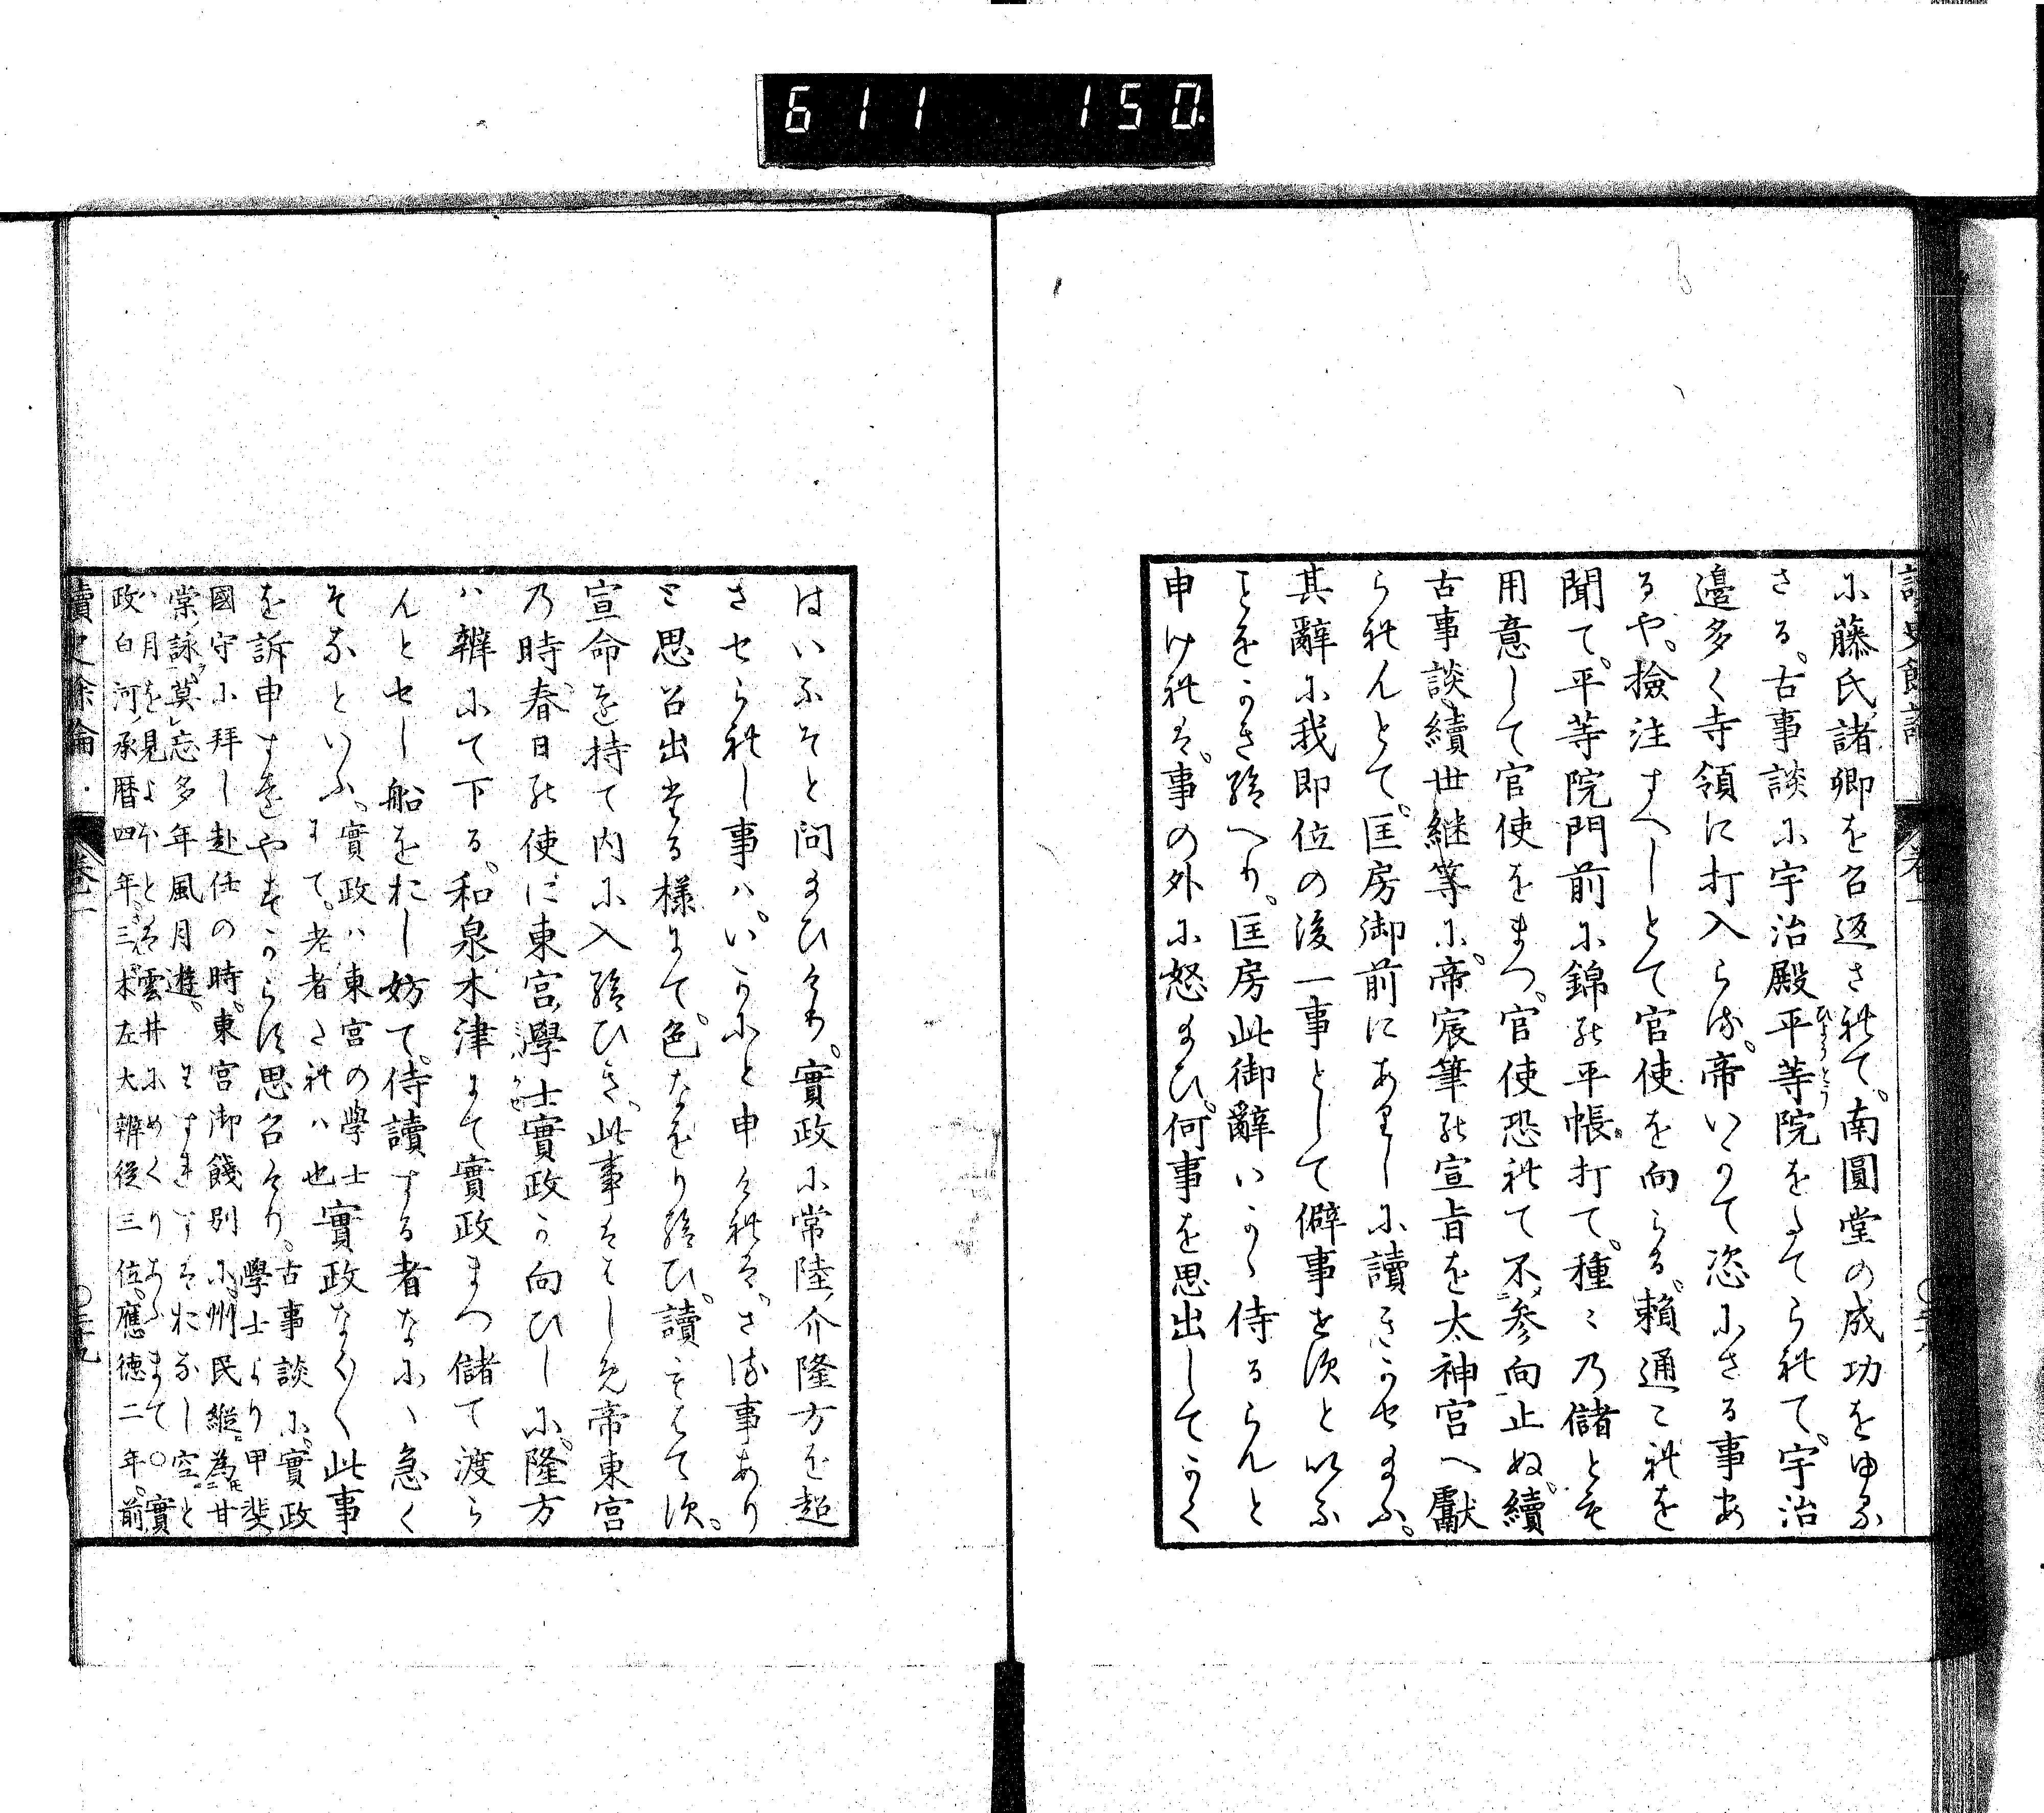 611 150
讀史餘論 卷一
に藤氏諸卿を召返されて。南圓堂の成功を申行
さる。古事談に宇治殿平等院をたてられて。宇治
邊多く寺領に打入らる。帝いかて恣にさる事あ
るや。撿注すへしとて官使を向らる。賴通これを
聞て。平等院門前に錦の平帳打て。種々の儲とも
用意して官使をまつ。官使恐れて不参向止ぬ。續
古事談續世継等に。帝宸筆の宣旨を太神宮へ獻
られんとて。匡房御前にありしに讀きかせ給ふ。
其辭に我即位の後一事として僻事せすと以ふ
ことをかき給へり。匡房此御辭いかゝ侍るらんと
申けれは。事の外に怒給ひ。何事を思出してかく
はいふそと問給ひけり。實政に常陸介隆方を超
させられし事ハ。いかにと申けれは。さる事あり
と思召出たる様にて。色なをり給ひ。讀もはてす。
宣命を持て内に入給ひき。此事はもし先帝東宮
の時。春日の使に東宮學士實政か向ひしに。隆方
ハ辨にて下る。和泉木津にて實政まつ儲て渡ら
んとせし船をおし妨て。侍讀する者なに、急く
そなといふ。實政ハ東宮の學士にて。老者たれハ也實政なく〱此事
を訴申すをやすからす思召けり。古事談に。實政學士より甲斐
國守に拜し赴任の時。東宮御餞別に。州民縦為甘
棠詠。莫忘多年風月遊。わすれすはおなし空と
ハ月を見よほとは雲井にめくりあふまて〇實
政白河承暦四年三木左大辨從三位。應徳二年。前
讀史餘論 卷一